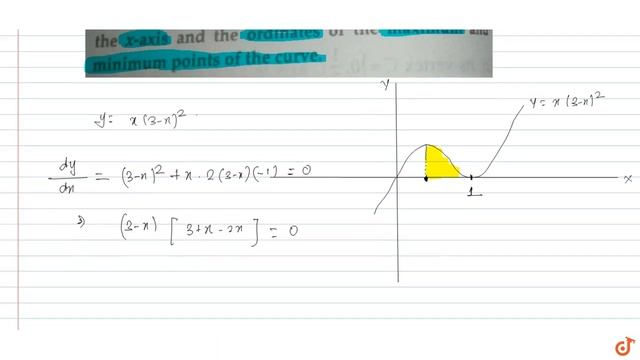 the x-axis and the ordinates of the maximum and
minimum points of the curve.
y= x(3-x)²
dy/dx = (3-x)² + x·2(3-x)(-1) = 0
(3-x) [3+x-2x] = 0
y
y= x(3-x)²
x
1